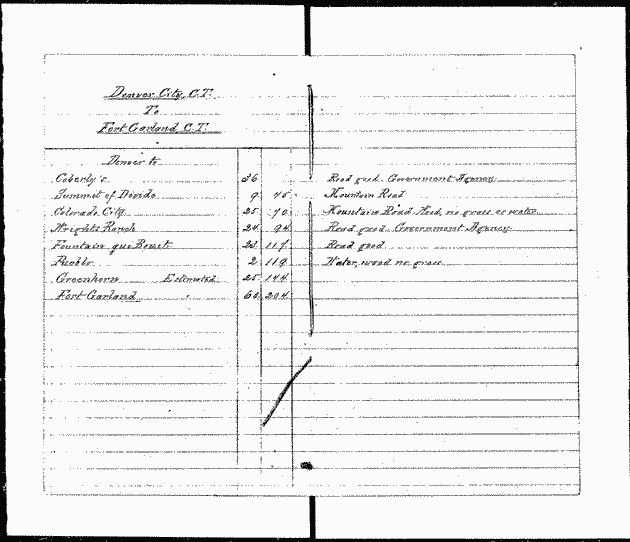 Denver City, C.T.
To
Fort Garland C.T.
Denver to
Coberly's 36 Road good. Government Agency
Summit of Divide 9 45 Mountain Road
Colorado City 25 70 Mountain Road Wood, no grass or water
Wrights Ranch 24 94 Road good. Government Agency
Fountain qui Bouit 23 117 Road good
Pueblo 2 119 Water, wood no grass
Greenhorn Estimated 25 144
Fort Garland " 60 204